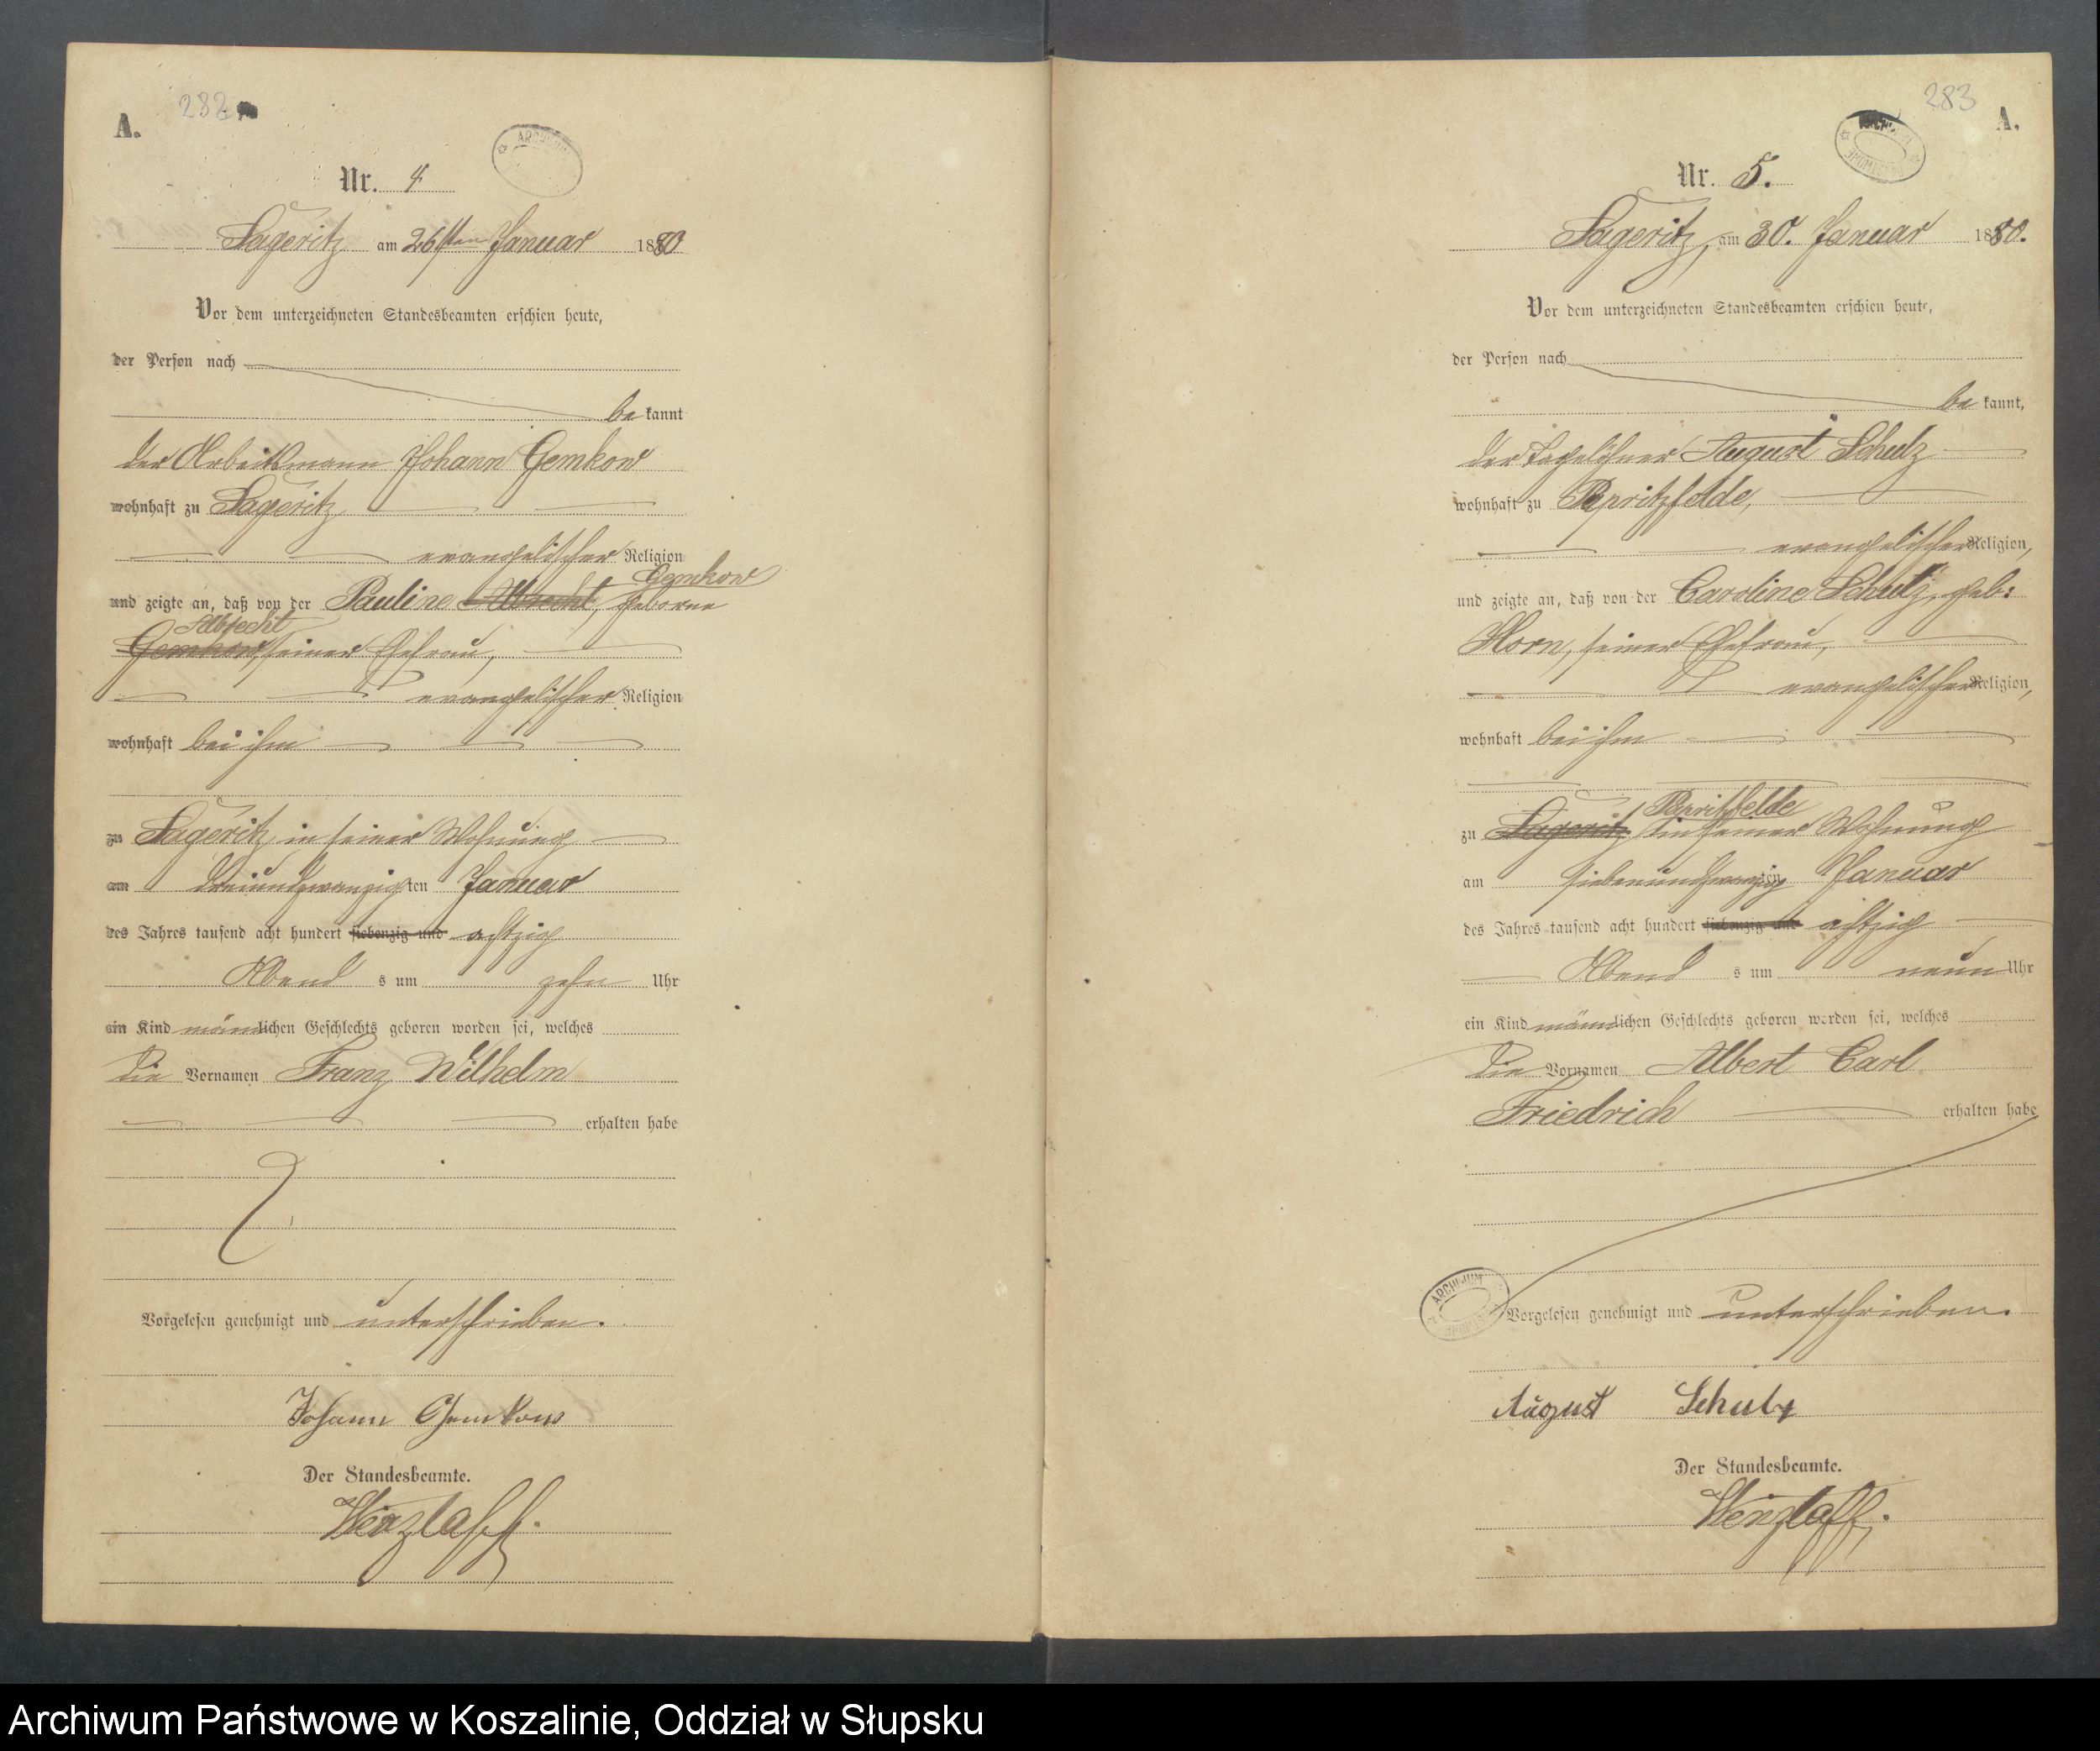 A.
282
Nr. 4
Lageritz am 26sten Januar 1880
Vor dem unterzeichneten Standesbeamten erschien heute,
der Person nach
be kannt
der Arbeitsmann Johann Gemkow
wohnhaft zu Lageritz
evangelischer Religion
Gemkow
und zeigte an, daß von der Pauline Albrecht, geborne
Albrecht
Gemkow, seiner Ehefrau,
evangelischer Religion
wohnhaft bei ihm
zu Lageritz in seiner Wohnung
am dreiundzwanzigten Januar
des Jahres tausend acht hundert siebenzig und achtzig
Abend s um zehn Uhr
ein Kind männlichen Geschlechts geboren worden sei, welches
die Vornamen Franz Wilhelm
erhalten habe
Vorgelesen genehmigt und unterschrieben.
Johann Gemkow
Der Standesbeamte.
Wenzlaff.
283
A.
Nr. 5.
Lageritz, am 30. Januar 1880.
Vor dem unterzeichneten Standesbeamten erschien heute,
der Person nach
be kannt,
der Tagelöhner August Schulz
wohnhaft zu Papritzfelde,
evangelischer Religion,
und zeigte an, daß von der Caroline Schulz, geb:
Horn, seiner Ehefrau,
evangelischer Religion,
wohnhaft bei ihm
Papritzfelde
zu Lageritz in seiner Wohnung
am siebenundzwanzigten Januar
des Jahres tausend acht hundert siebenzig und achtzig
Abend s um neun Uhr
ein Kind männlichen Geschlechts geboren worden sei, welches
die Vornamen Albert Carl
Friedrich erhalten habe
Vorgelesen genehmigt und unterschrieben.
August Schulz
Der Standesbeamte.
Wenzlaff.
Archiwum Państwowe w Koszalinie, Oddział w Słupsku